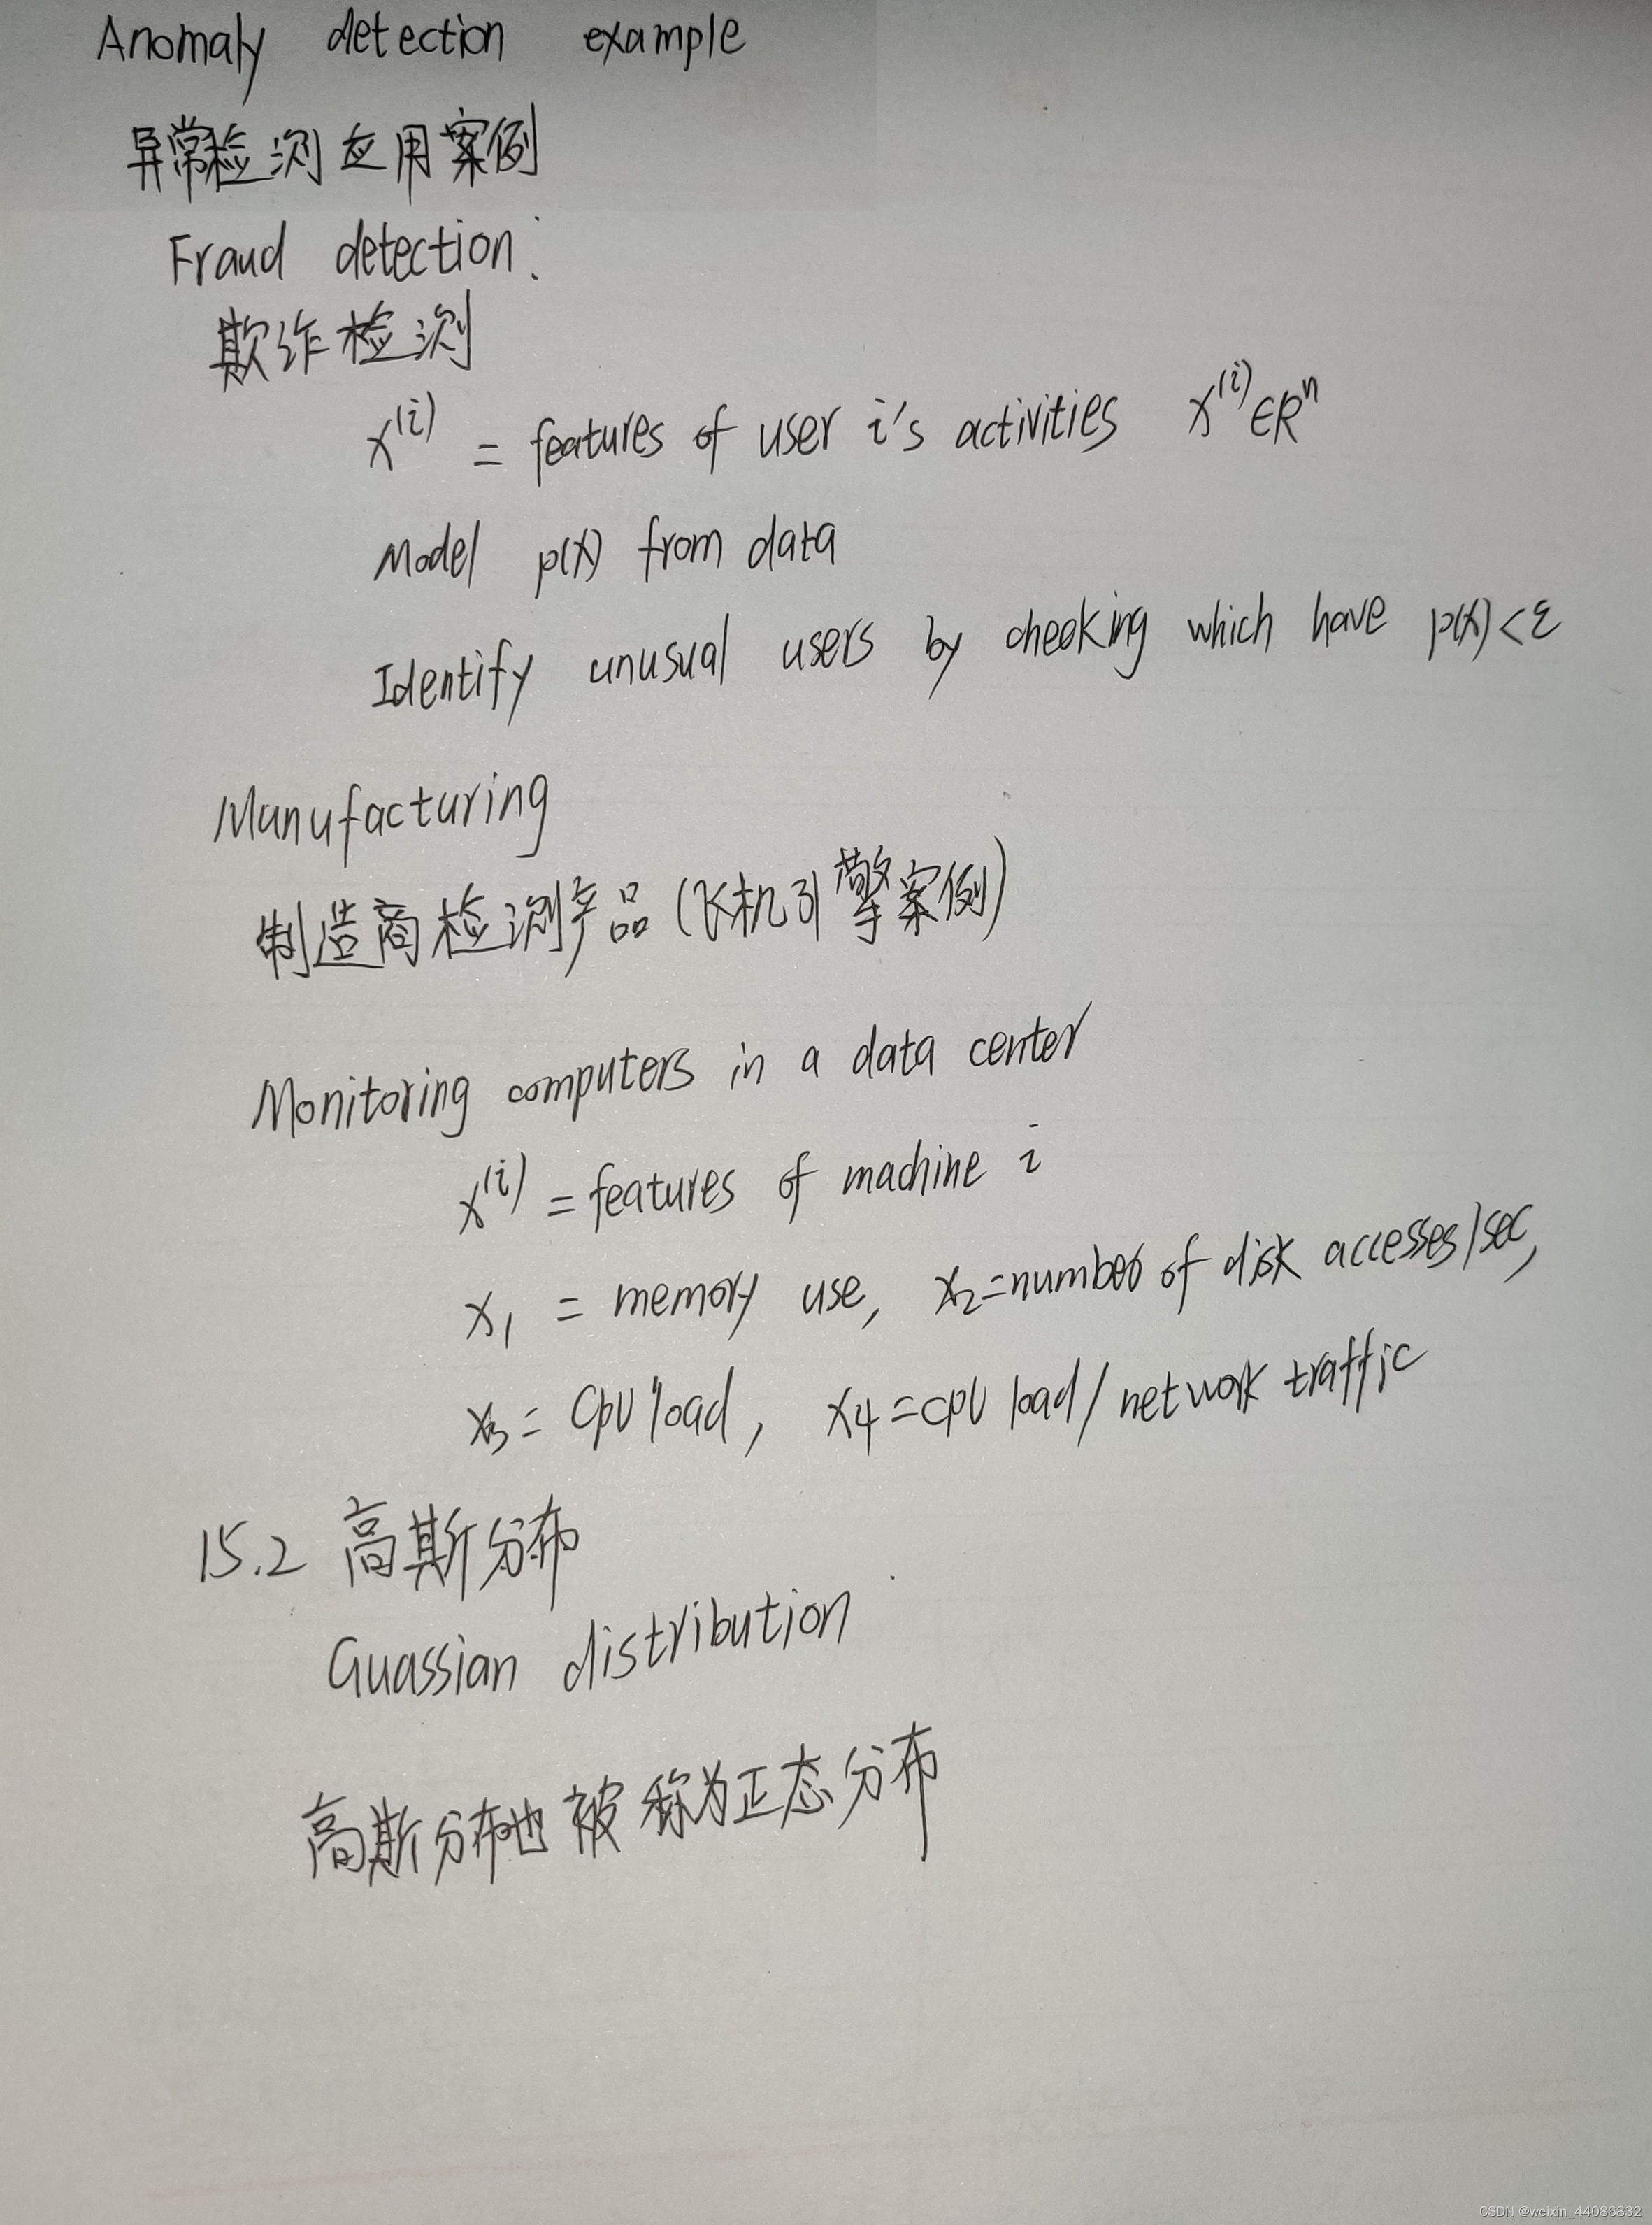 Anomaly detection example
异常检测应用案例
Fraud detection:
欺诈检测
x⁽ⁱ⁾ = features of user i's activities x⁽ⁱ⁾∈Rⁿ
Model p(x) from data
Identify unusual users by checking which have p(x)<ε
Manufacturing
制造商检测产品(飞机引擎案例)
Monitoring computers in a data center
x⁽ⁱ⁾ = features of machine i
x₁ = memory use, x₂=number of disk accesses/sec,
x₃ = CPU load, x₄=CPU load/network traffic
15.2 高斯分布
Guassian distribution
高斯分布也被称为正态分布
CSDN @weixin_44086832